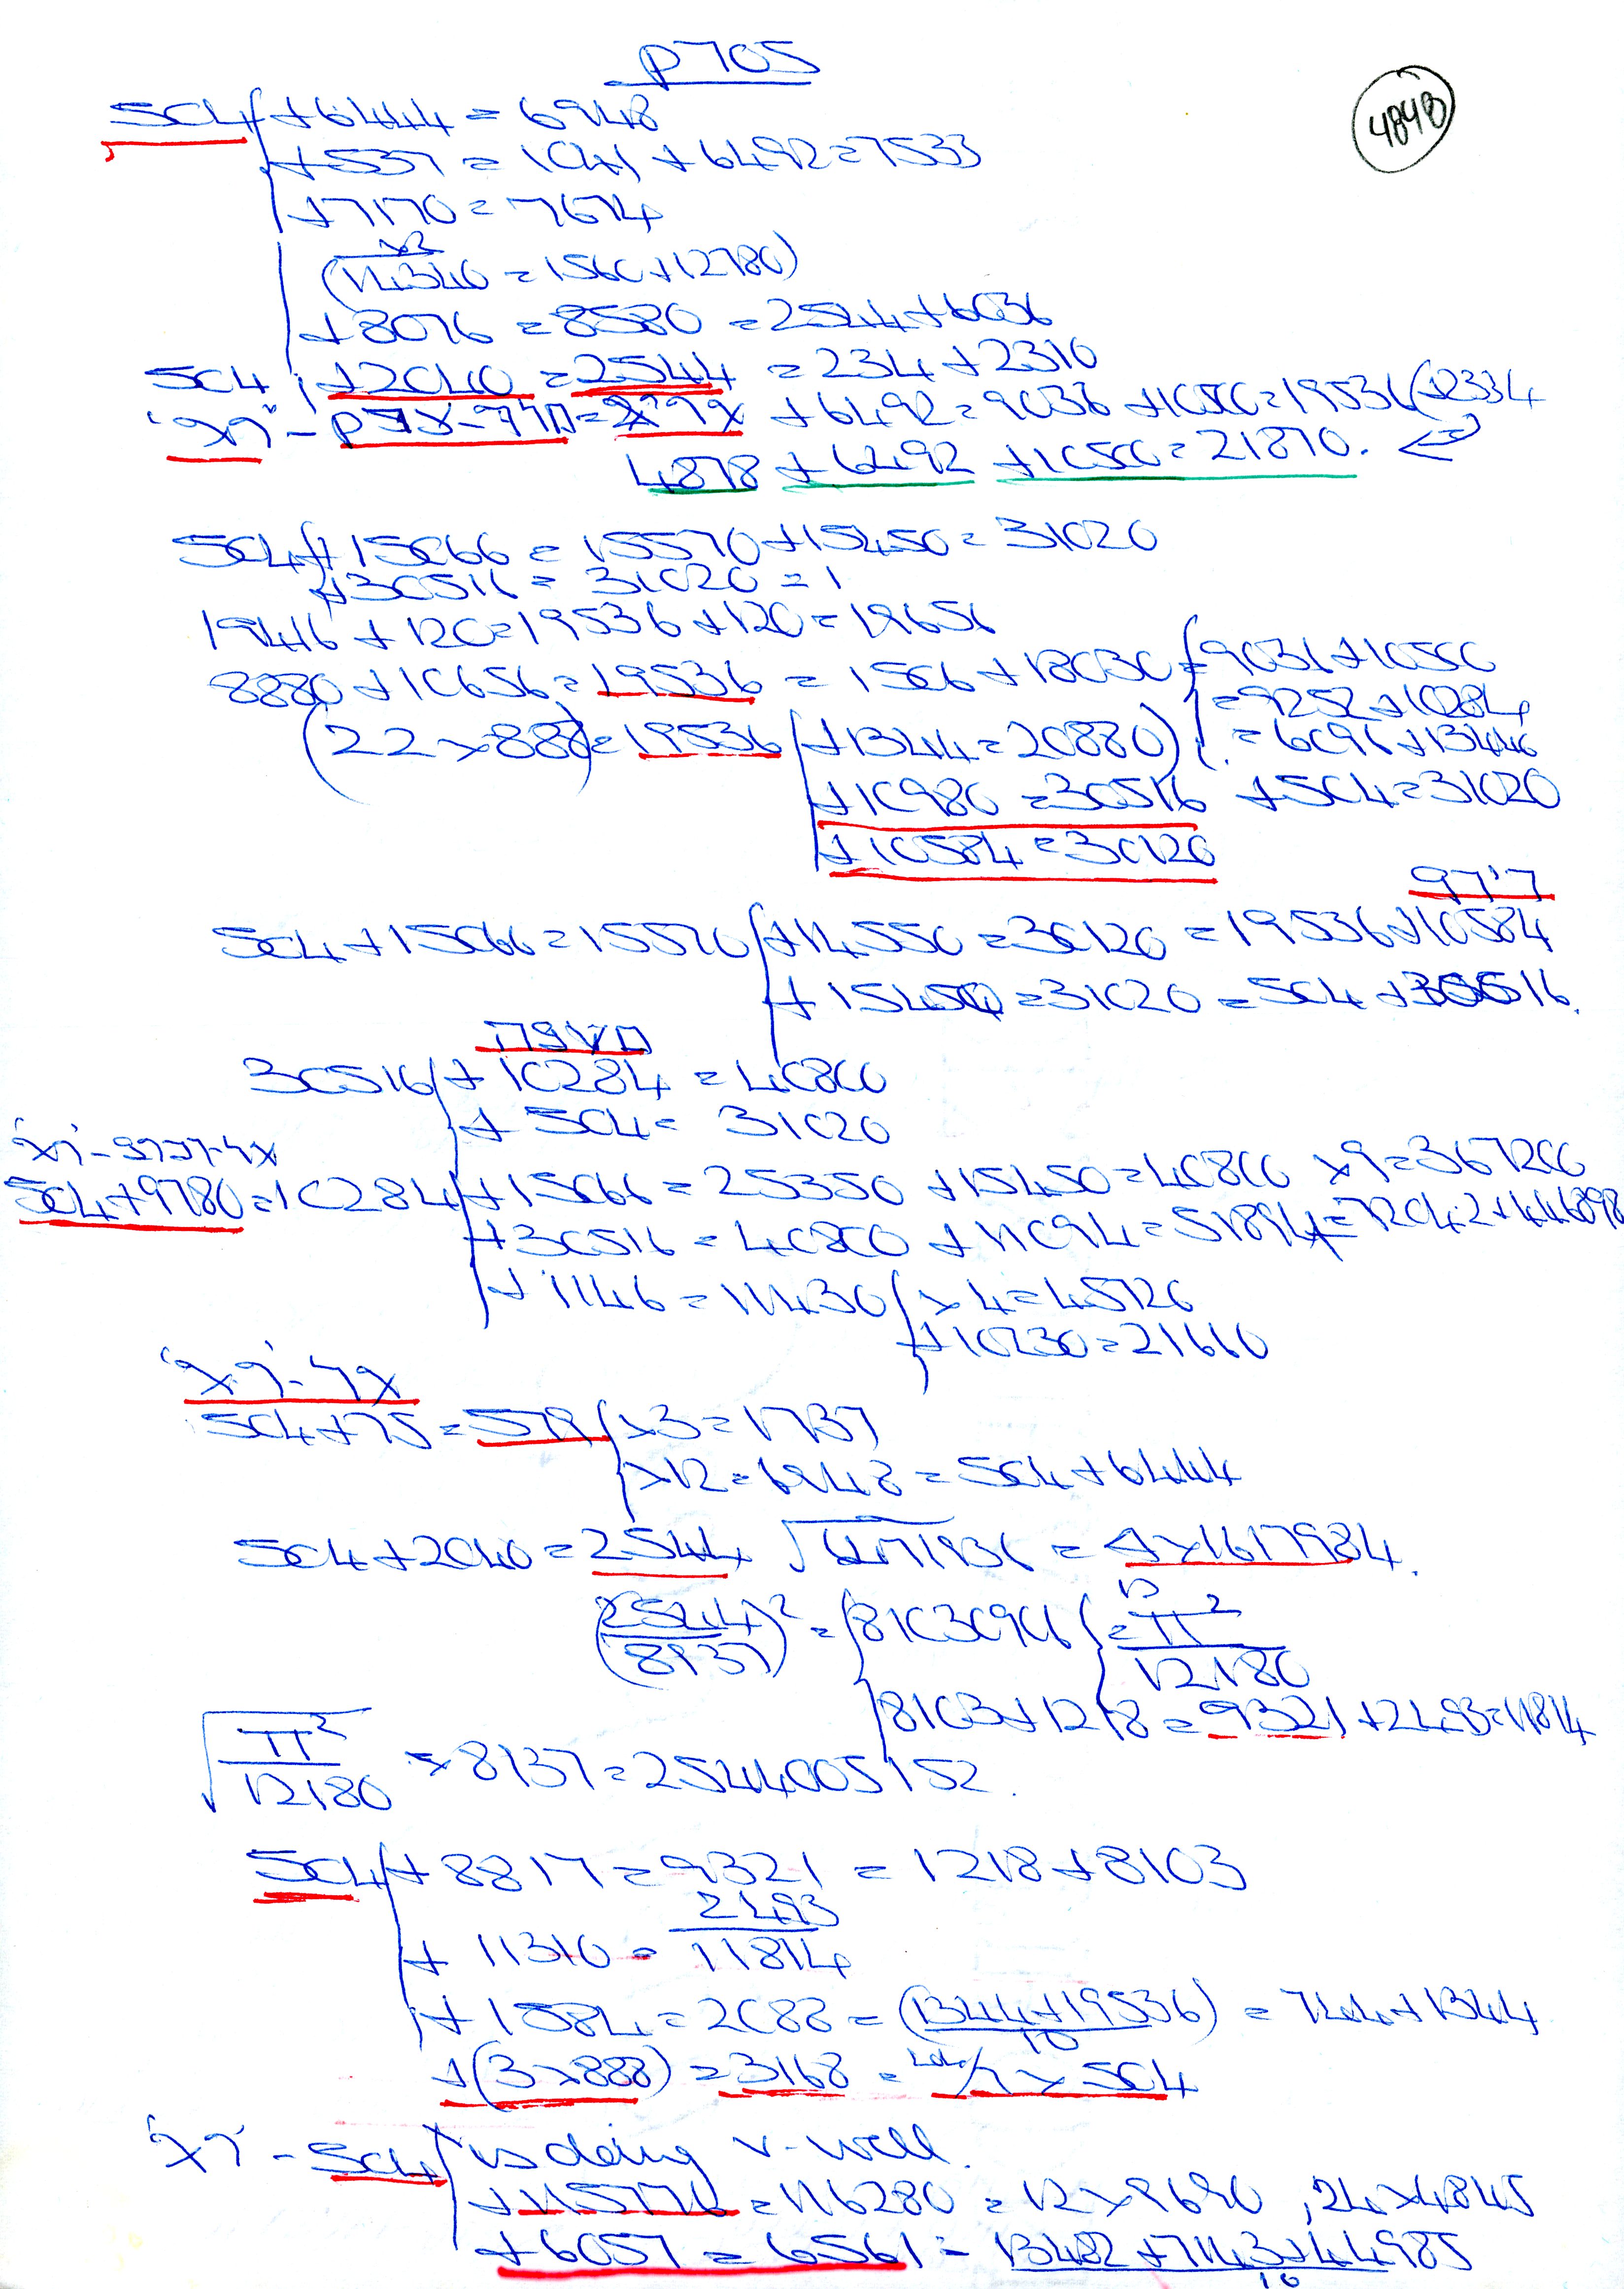 P705
4848
504 + 6444 = 6948
+ 537 = 1041 + 6492 = 7533
+ 7170 = 7674
x2
(14340 = 1560 + 12780)
+ 8076 = 8580 = 2544 + 6036
504 + 2040 = 2544 = 234 + 2310
+ 6492 = 9036 + 10500 = 19536 (+2334
4878 + 6492 + 10500 = 21870.
504 + 15066 = 15570 + 15450 = 31020
+ 30516 = 31020 = 1
19416 + 120 = 19536 + 120 = 19656
8880 + 10656 = 19536 = 1506 + 18030 = 9036 + 10500
= 9252 + 10284
(22 x 888) = 19536 + 1344 = 20880) = 6096 + 13440
+ 10980 = 30516 + 504 = 31020
+ 10584 = 30120
504 + 15066 = 15570 + 14550 = 30120 = 19536 + 10584
+ 15450 = 31020 = 504 + 30516.
30516 + 10284 = 40800
+ 504 = 31020
504 + 9780 = 10284 + 15066 = 25350 + 15450 = 40800 x 9 = 367200
+ 30516 = 40800 + 11094 = 51894 = 7204.2 + 44689.8
+ 1146 = 11430 x 4 = 45720
+ 10230 = 21660
504 + 75 = 579 x 3 = 1737
x 12 = 6948 = 504 + 6444
504 + 2040 = 2544 √6471936 = 4 x 1617984.
(2544/8137)² = 81030906 = π²/12180
8103 + 1218 = 9321 + 2493 = 11814
√π²/12180 x 8137 = 2544005152.
504 + 8817 = 9321 = 1218 + 8103
2493
+ 11310 = 11814
+ 1584 = 2088 = (1344 + 19536)/10 = 744 + 1344
+ (3 x 888) = 3168 = 44/7 x 504
504 is doing v-well.
+ 115776 = 116280 = 12 x 9690, 24 x 4845
+ 6057 = 6561 = 13482 + 7143 + 44985
10